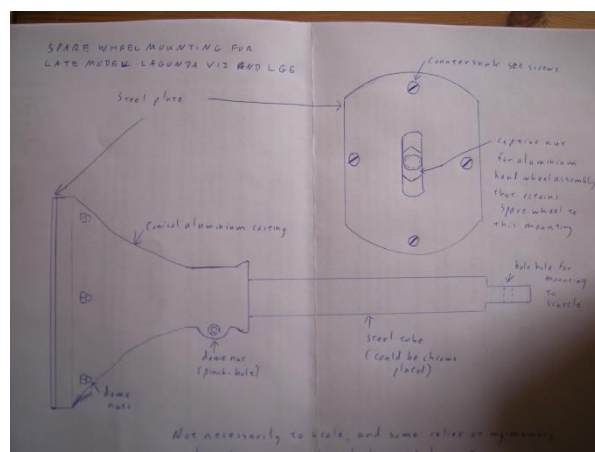 SPARE WHEEL MOUNTING FOR
LATE MODEL LAGONDA V12 AND LG6
Steel plate
countersunk set screws
captive nut
for aluminium
hand wheel assembly
that retains
spare wheel to
this mounting
conical aluminium casting
bolt hole for
mounting
to
scuttle
dome nut
(pinch-bolt)
steel tube
(could be chrome
plated)
dome
nuts
Not necessarily to scale, and some relies on my memory